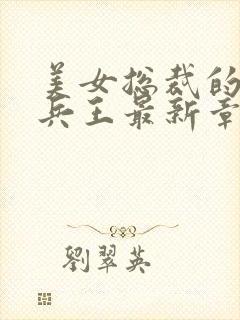 美女总裁的
兵王最新章
劉翠英